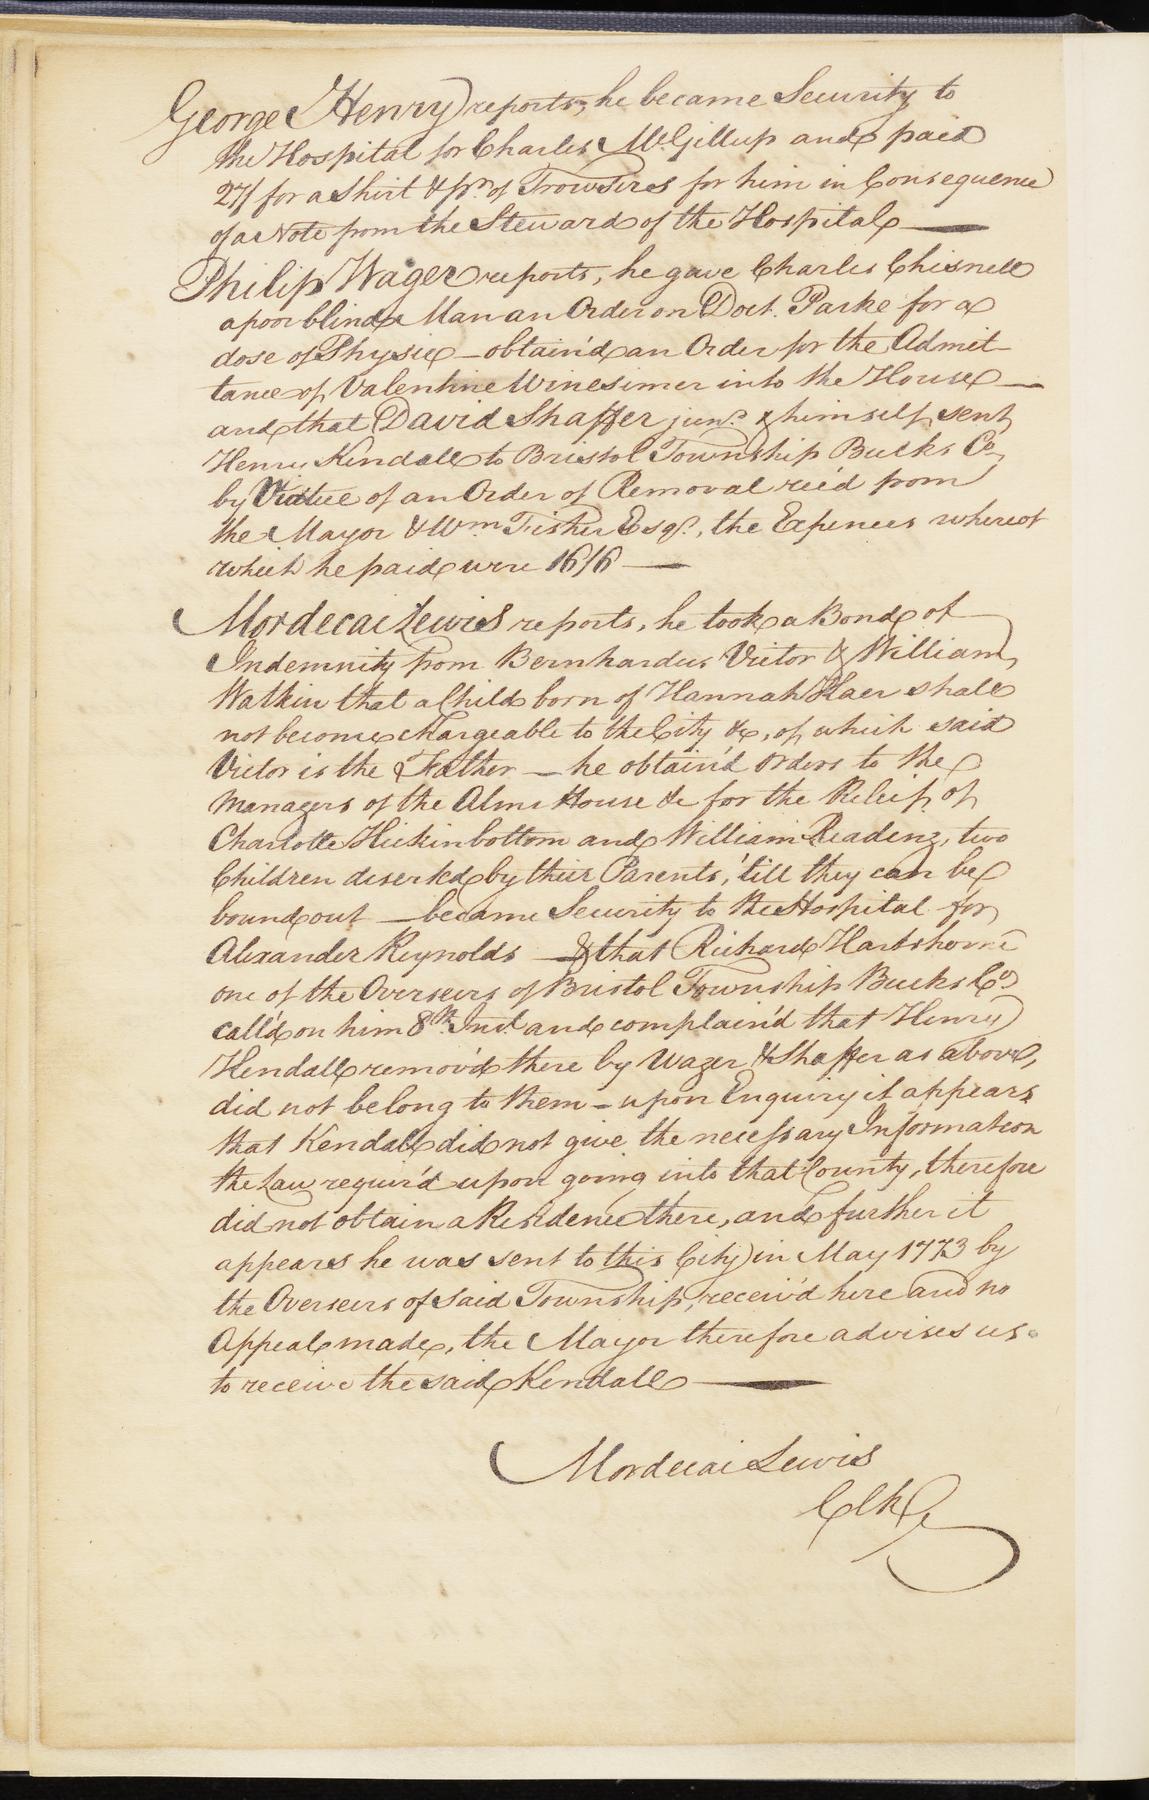 George Henry reports, he became Security to
the Hospital for Charles McGillup and paid
27/ for a Shirt & pr. of Trowsers for him in Consequence
of a Note from the Steward of the Hospital —
Philip Wager reports, he gave Charles Chisnell
a poor blind Man an Order on Doct. Parke for a
dose of Physic — obtain'd an Order for the Admit-
tance of Valentine Winesimer into the House —
and that David Shaffer junr. & himself sent
Henry Kendall to Bristol Township Bucks Co.
by Virtue of an Order of Removal rec'd from
the Mayor & Wm Fisher Esqr., the Expences whereof
which he paid were 16/6 —
Mordecai Lewis reports, he took a Bond of
Indemnity from Bernhardus Victor & William
Watkin that a Child born of Hannah Haer shall
not become chargeable to the City &c, of which said
Victor is the Father — he obtain'd orders to the
Managers of the Alms House &c for the Releif of
Charlotte Hickinbottom and William Reading, two
Children deserted by their Parents, 'till they can be
bound out — became Security to the Hospital for
Alexander Reynolds — & that Richard Hartshorne
one of the Overseers of Bristol Township Bucks Co.
call'd on him 8th Inst and complain'd that Henry
Kendall remov'd there by Wager & Shaffer as above,
did not belong to them — upon Enquiry it appears
that Kendall did not give the necessary Information
the Law requir'd upon going into that County, therefore
did not obtain a Residence there, and further it
appears he was sent to this City in May 1773 by
the Overseers of said Township, receiv'd here and no
Appeal made, the Mayor therefore advises us
to receive the said Kendall —
Mordecai Lewis
Clk